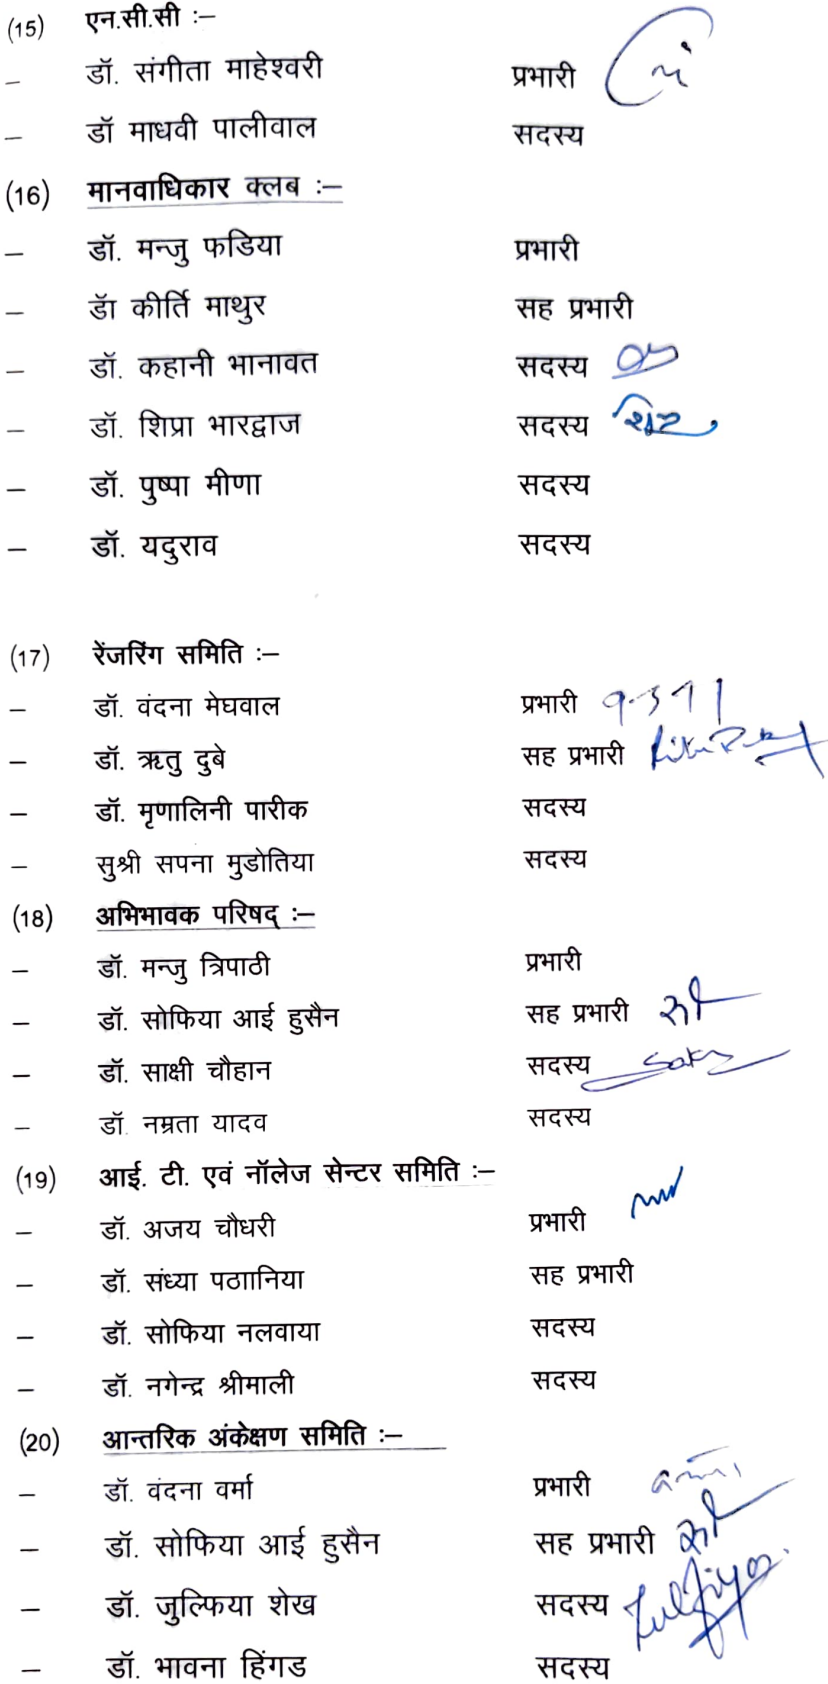 (15) एन.सी.सी :–
– डॉ. संगीता माहेश्वरी प्रभारी
– डॉ माधवी पालीवाल सदस्य
(16) मानवाधिकार क्लब :–
– डॉ. मन्जु फडिया प्रभारी
– डॅा कीर्ति माथुर सह प्रभारी
– डॉ. कहानी भानावत सदस्य
– डॉ. शिप्रा भारद्वाज सदस्य
– डॉ. पुष्पा मीणा सदस्य
– डॉ. यदुराव सदस्य
(17) रेंजरिंग समिति :–
– डॉ. वंदना मेघवाल प्रभारी
– डॉ. ऋतु दुबे सह प्रभारी
– डॉ. मृणालिनी पारीक सदस्य
– सुश्री सपना मुडोतिया सदस्य
(18) अभिभावक परिषद् :–
– डॉ. मन्जु त्रिपाठी प्रभारी
– डॉ. सोफिया आई हुसैन सह प्रभारी
– डॉ. साक्षी चौहान सदस्य
– डॉ. नम्रता यादव सदस्य
(19) आई. टी. एवं नॉलेज सेन्टर समिति :–
– डॉ. अजय चौधरी प्रभारी
– डॉ. संध्या पठाानिया सह प्रभारी
– डॉ. सोफिया नलवाया सदस्य
– डॉ. नगेन्द्र श्रीमाली सदस्य
(20) आन्तरिक अंकेक्षण समिति :–
– डॉ. वंदना वर्मा प्रभारी
– डॉ. सोफिया आई हुसैन सह प्रभारी
– डॉ. जुल्फिया शेख सदस्य
– डॉ. भावना हिंगड सदस्य